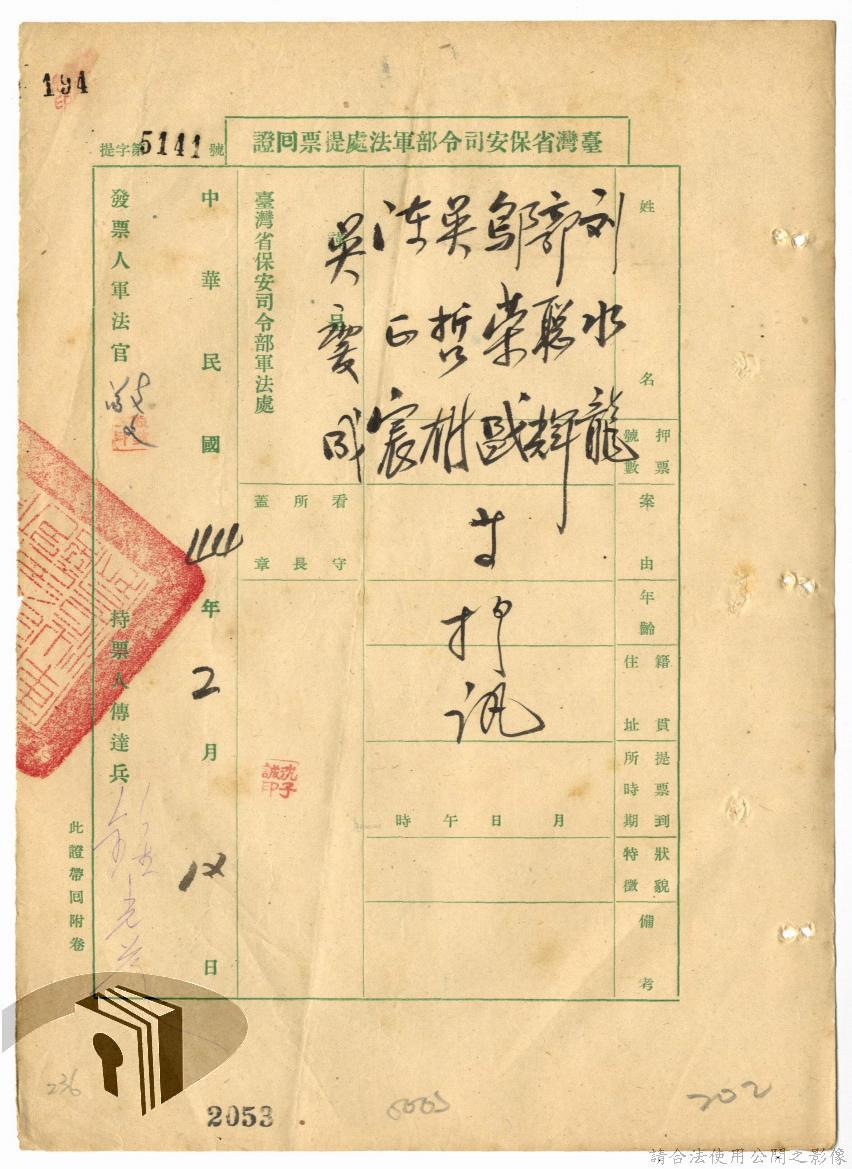 194
臺灣省保安司令部軍法處提票回證
提字第5141號
姓名
刘水龍
郭聡輝
鄔荣國
英哲樹
涂正宸
吳震成
押票號數
案由
年齡
籍貫住址
提票到所時期
月 日 午 時
狀貌特徵
備考
押
訊
看守所長蓋章
沈子誠印
臺灣省保安司令部軍法處
中華民國 年 2 月 日
發票人軍法官
持票人傳達兵
此證帶回附卷
236
2053
202
請合法使用公開之影像